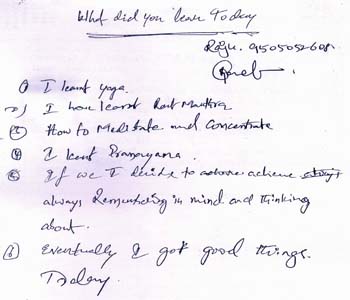 What did you learn Today
Raju. 9505052608
1) I learnt yoga.
2) I have learnt
3) How to Meditate and Concentrate
4) I learnt Pranayama.
5) If we I decide to achieve
always Remembering in mind and thinking
about.
6) Eventually I got good things.
Today.